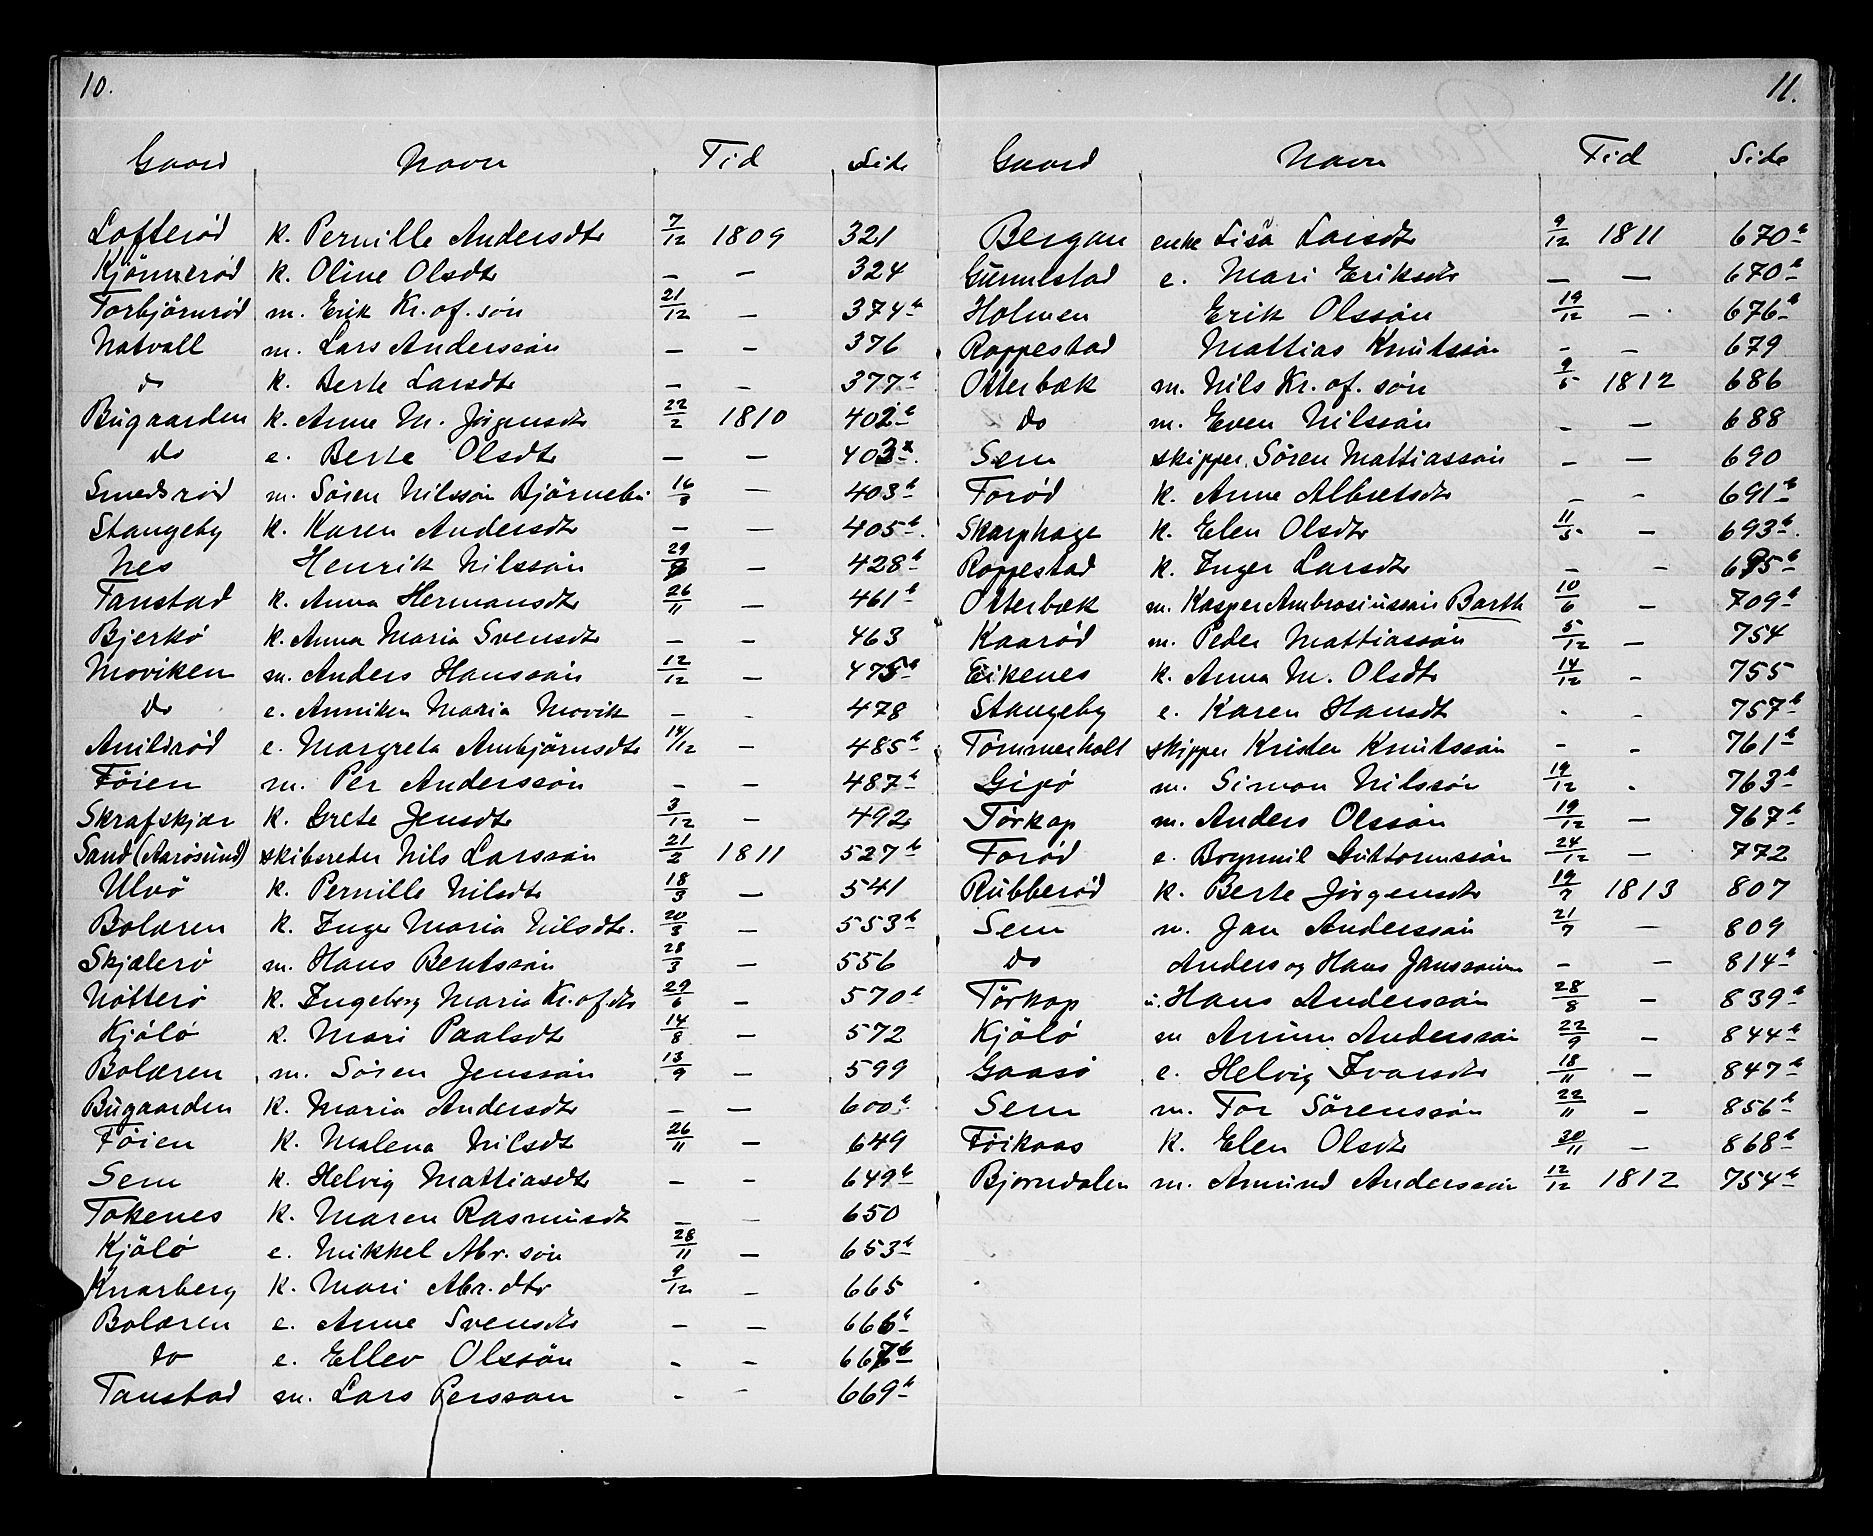 10.
Gaard Navn Tid Side
Lofterød k. Pernille Andersdtr 7/12 1809 321
Kjønnerød k. Oline Olsdtr — — 324
Torbjørnrød m. Erik Kr.of.søn 21/12 — 374b
Natvall m. Lars Anderssøn — — 376
do k. Berte Larsdtr — — 377b
Bugaarden k. Anne M. Jørgensdtr 22/2 1810 402b
do e. Berte Olsdtr — — 403
Smedsrød m. Søren Nilssøn Bjørnebu 16/3 — 403b
Stangeby k. Karen Andersdtr — — 405b
Nes Henrik Nilssøn 29/ — 428b
Tanstad k. Anna Hermansdtr 26/11 — 461b
Bjerkø k. Anna Maria Svensdtr — — 463
Moviken m. Anders Hanssøn 12/12 — 475b
do e. Anniken Maria Movik — — 478
Anildrød e. Margreta Ambjørnsdtr 14/12 — 485b
Føien m. Per Anderssøn — — 487b
Skrafskjær k. Grete Jensdtr 3/12 — 492
Sand (Aarøsund) skibsreder Nils Larssøn 21/2 1811 527b
Ulvø k. Pernille Nilsdtr 18/3 — 541
Bolæren k. Inger Maria Nilsdtr. 20/3 — 553b
Skjælerø m. Hans Bentssøn 28/3 — 556
Nøtterø k. Ingeborg Maria Kr.of.dtr 29/6 — 570b
Kjøló k. Mari Paalsdtr 14/8 — 572
Bolæren m. Søren Jenssøn 13/9 — 599
Bugaarden k. Maria Andersdtr — — 600b
Føien k. Malena Nilsdtr 26/11 — 649
Sem k. Helvig Mattiasdtr — — 649b
Tokenes k. Maren Rasmusdtr — — 650
Kjøló e. Mikkel Abr.søn 28/11 — 653b
Knarberg k. Mari Abr.dtr 9/12 — 665
Bolæren e. Anne Svensdtr — — 666b
do e. Ellev Olssøn — — 667b
Tanstad m. Lars Perssøn — — 669b
11.
Gaard Navn Tid Side
Bergan enke Lisa Larsdtr 9/12 1811 670b
Gunnestad e. Mari Eriksdtr — — 670b
Holmen Erik Olssøn 19/12 — 676b
Roppestad Mattias Knutssøn — — 679
Otterbæk m. Nils Kr.of.søn 9/5 1812 686
do m. Even Nilssøn — — 688
Sem skipper Søren Mattiassøn — — 690
Torød k. Anne Albretsdtr — — 691b
Skarphage k. Elen Olsdtr 11/5 — 693b.
Roppestad k. Inger Larsdtr — — 695b
Otterbæk m. Kasper Ambrosiussøn Barth 10/6 — 709b
Kaarød m. Peder Mattiassøn 5/12 — 754
Eikenes k. Anna M. Olsdtr 14/12 — 755
Stangeby e. Karen Hansdtr — — 757b
Tømmerholt skipper Krister Knutssøn — — 761b
Gipø m. Simon Nilssøn 19/12 — 763b
Torkop m. Anders Olssøn 19/12 — 767b
Torød e. Bogumil Guttormssøn 24/12 — 772
Rubberød k. Berte Jørgensdtr 19/7 1813 807
Sem m. Jan Anderssøn 21/7 — 809
do Anders og Hans Janssønner — — 814b
Torkop u. Hans Anderssøn 28/8 — 839b
Kjøló m Anun Anderssøn 22/9 — 844b
Gaasø e. Helvig Ivarsdtr 18/11 — 847b
Sem m. Tor Sørenssøn 22/11 — 856b
Føikaas k. Elen Olsdtr 30/11 — 868b
Bjørndalen m. Amund Anderssøn 12/12 1812 754b